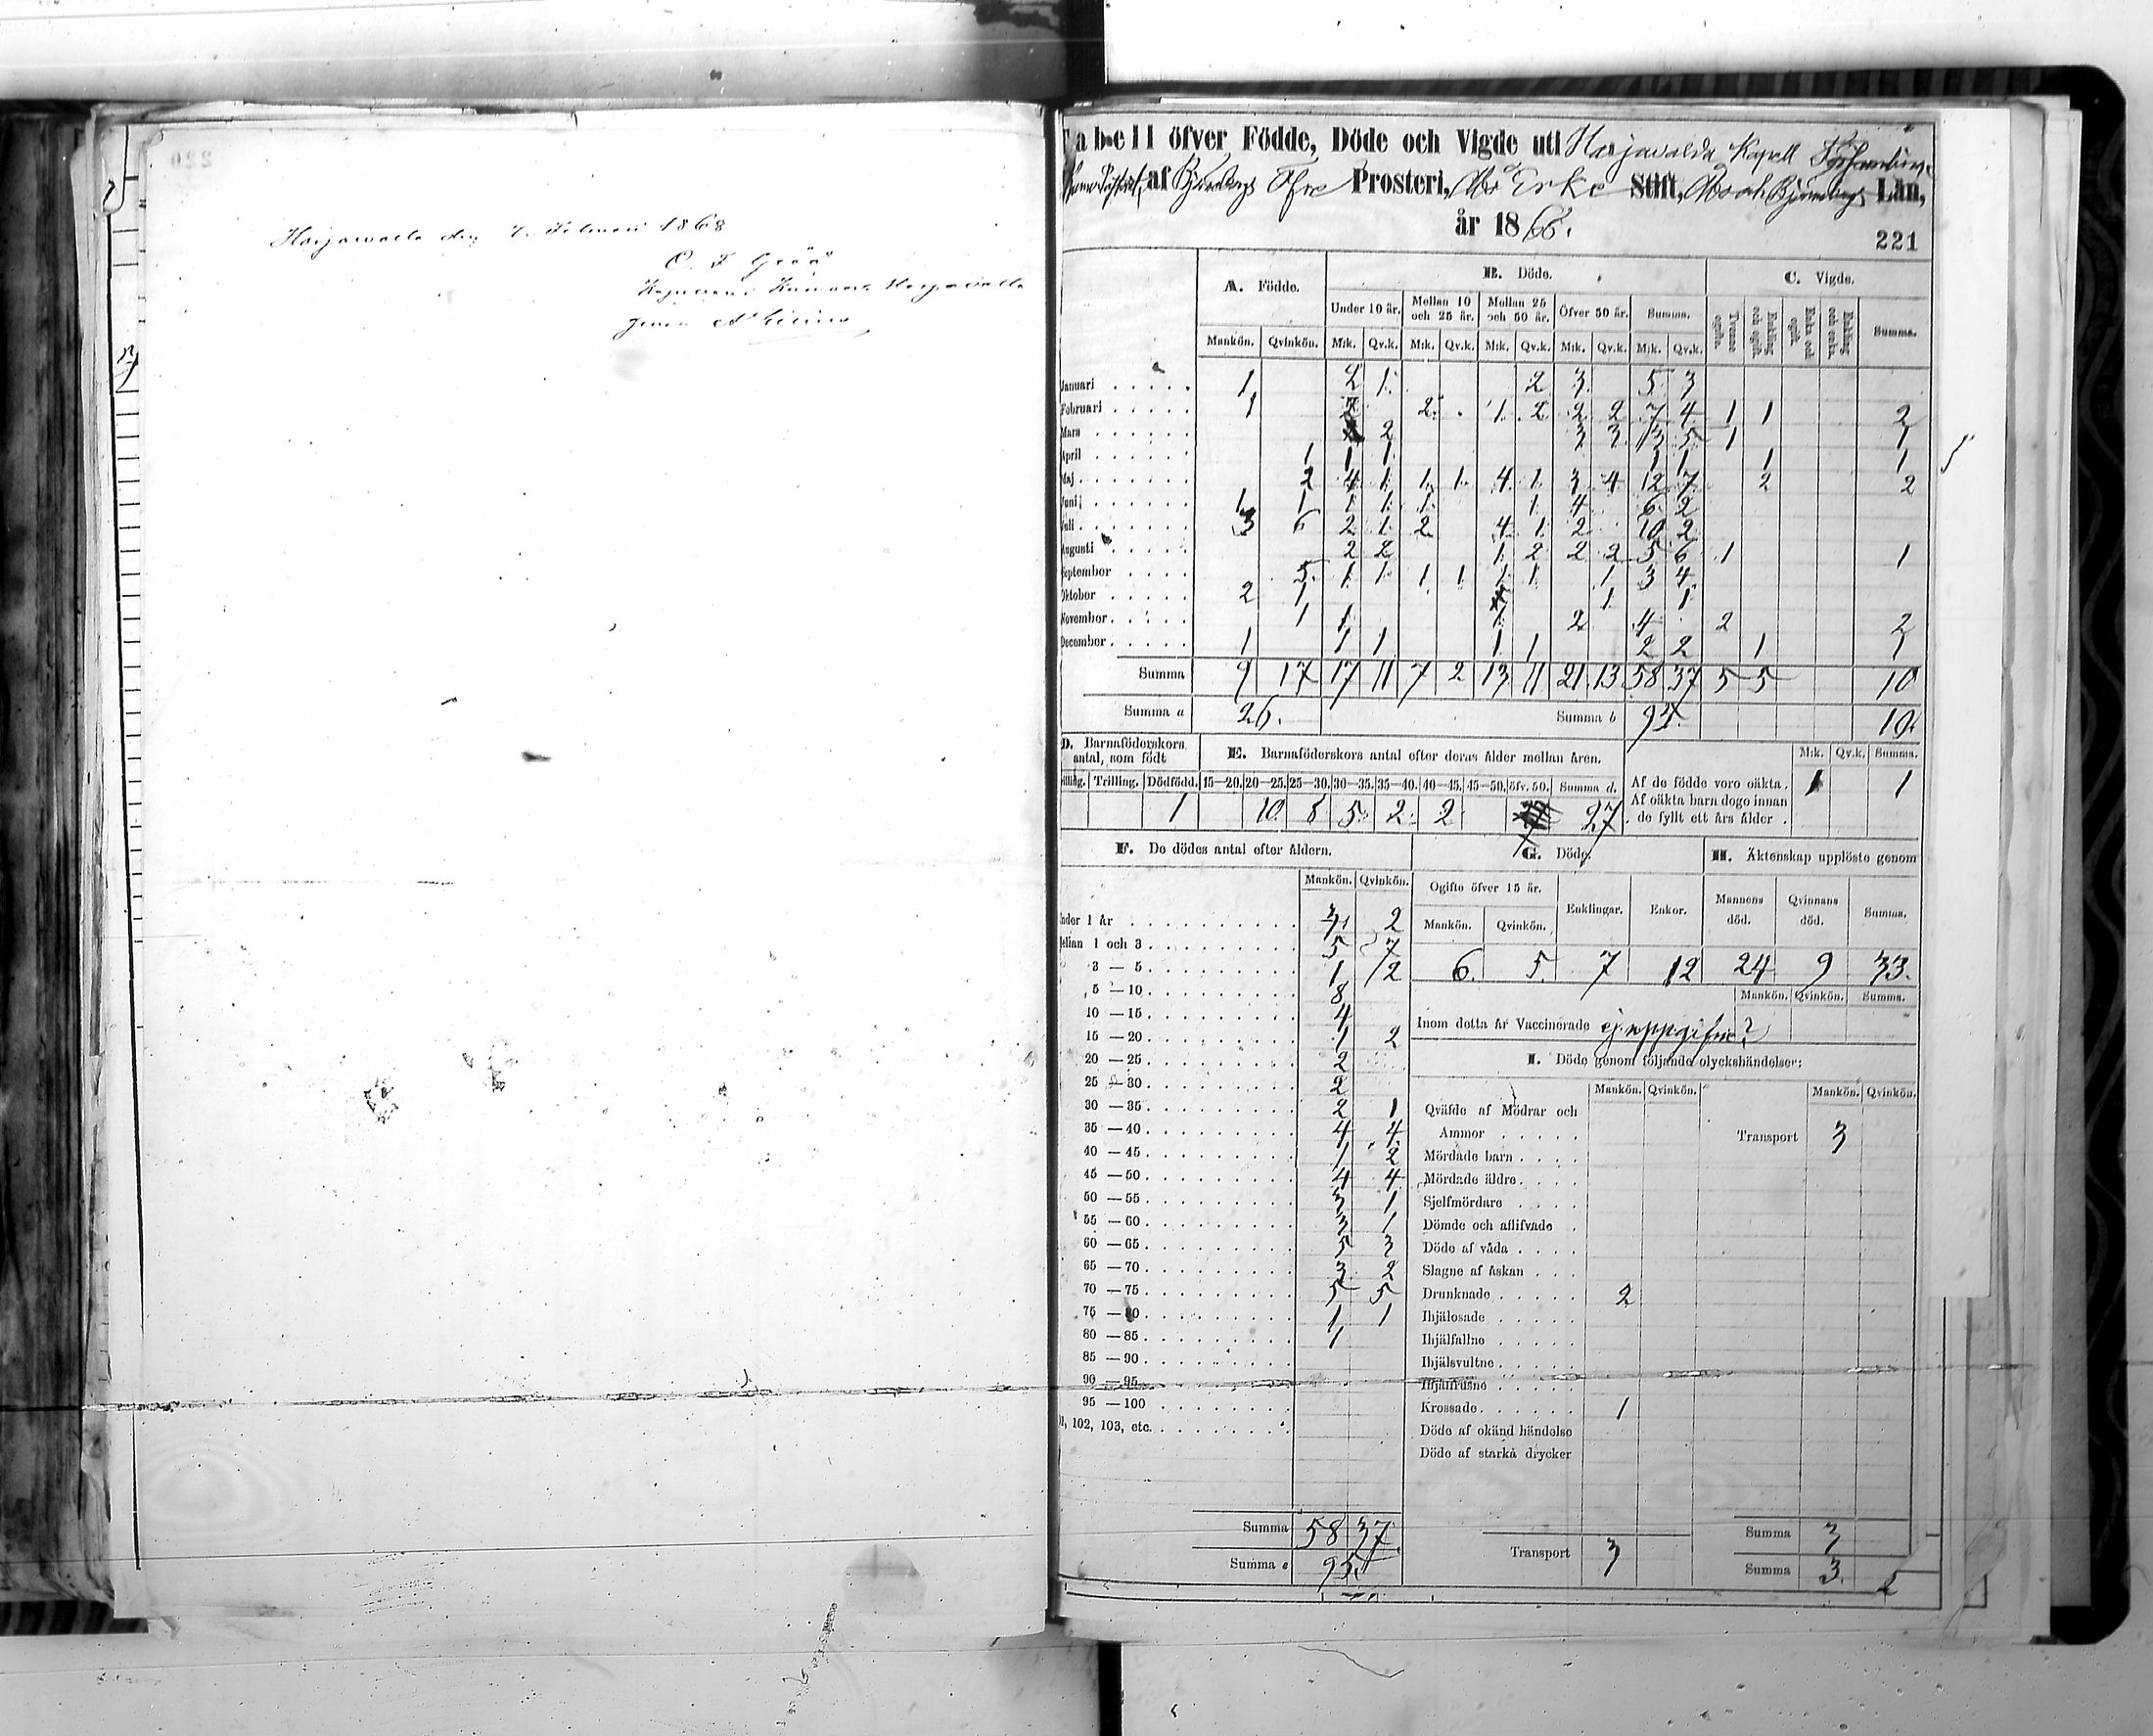 Harjawalla den 7 Februari 1868
C. F. Grön
Harjawalla
genom
Tabell öfver Födde, Döde och Vigde uti Harjawalda Kapell Församling
af Björneborgs Öfre Prosteri, Åbo Erke Stift, Åbo och Björneborgs Län,
år 1866.
221
A. Födde. B. Döde. C. Vigde.
Under 10 år. Mellan 10 och 25 år. Mellan 25 och 50 år. Öfver 50 år. Summa. Tvenne ogifte. Enkling och ogift. Enka och ogift. Enkling och enka. Summa.
Mankön. Qvinkön. M.k. Qv.k. M.k. Qv.k. M.k. Qv.k. M.k. Qv.k. M.k. Qv.k.
Januari 1 2 1 2 3 5 3
Februari 1 2 2 1 2 2 2 7 4 1 1 2
Mars 2 3 3 3 5 1 1
April 1 1 1 1 1 1 1
Maj 2 4 1 1 1 4 1 3 4 12 7 2 2
Juni 1 1 1 1 1 1 4 6 2
Juli 3 6 2 1 2 4 1 2 10 2
Augusti 2 2 1 2 2 2 5 6 1 1
September 5 1 1 1 1 1 1 1 3 4
Oktober 2 1 1 1
November 1 1 1 2 4 2 2
December 1 1 1 1 1 2 2 1 1
Summa 9 17 17 11 7 2 13 11 21 13 58 37 5 5 10
Summa a 26. Summa b 95. 10.
D. Barnaföderskors antal, som födt
Trilling. Dödfödd.
1
E. Barnaföderskors antal efter deras ålder mellan åren.
15—20. 20—25. 25—30. 30—35. 35—40. 40—45. 45—50. öfv. 50. Summa d.
10 8 5 2 2 27
M.k. Qv.k. Summa.
Af de födde voro oäkta. 1 1
Af oäkta barn dogo innan
de fyllt ett års ålder
F. De dödes antal efter åldern.
Mankön. Qvinkön.
Under 1 år 3 2
Mellan 1 och 3 5 7
3 — 5 1 2
5 — 10 8
10 — 15 4
15 — 20 1 2
20 — 25 2
25 — 30 2
30 — 35 2 1
35 — 40 4 4
40 — 45 1 2
45 — 50 4 4
50 — 55 3 1
55 — 60 3 1
60 — 65 5 3
65 — 70 3 2
70 — 75 5 5
75 — 80 1 1
80 — 85 1
85 — 90
90 — 95
95 — 100
102, 103, etc.
Summa 58 37
Summa e 95.
G. Döde.
Ogifte öfver 15 år. Enklingar. Enkor.
Mankön. Qvinkön.
6. 5 7 12
H. Äktenskap upplöste genom
Mannens död. Qvinnans död. Summa.
24 9 33.
Mankön. Qvinkön. Summa.
Inom detta år Vaccinerade ej uppgifne?
I. Döde genom följande olyckshändelser:
Mankön. Qvinkön. Mankön. Qvinkön.
Qväfde af Mödrar och
Ammor
Transport 3
Mördade barn
Mördade äldre
Sjelfmördare
Dömde och aflifvade
Döde af våda
Slagne af åskan
Drunknade 2
Ihjälosade
Ihjälfallne
Ihjälsvultne
Ihjälfrusne
Krossade 1
Döde af okänd händelse
Döde af starka drycker
Transport 3
Summa 3
Summa 3.